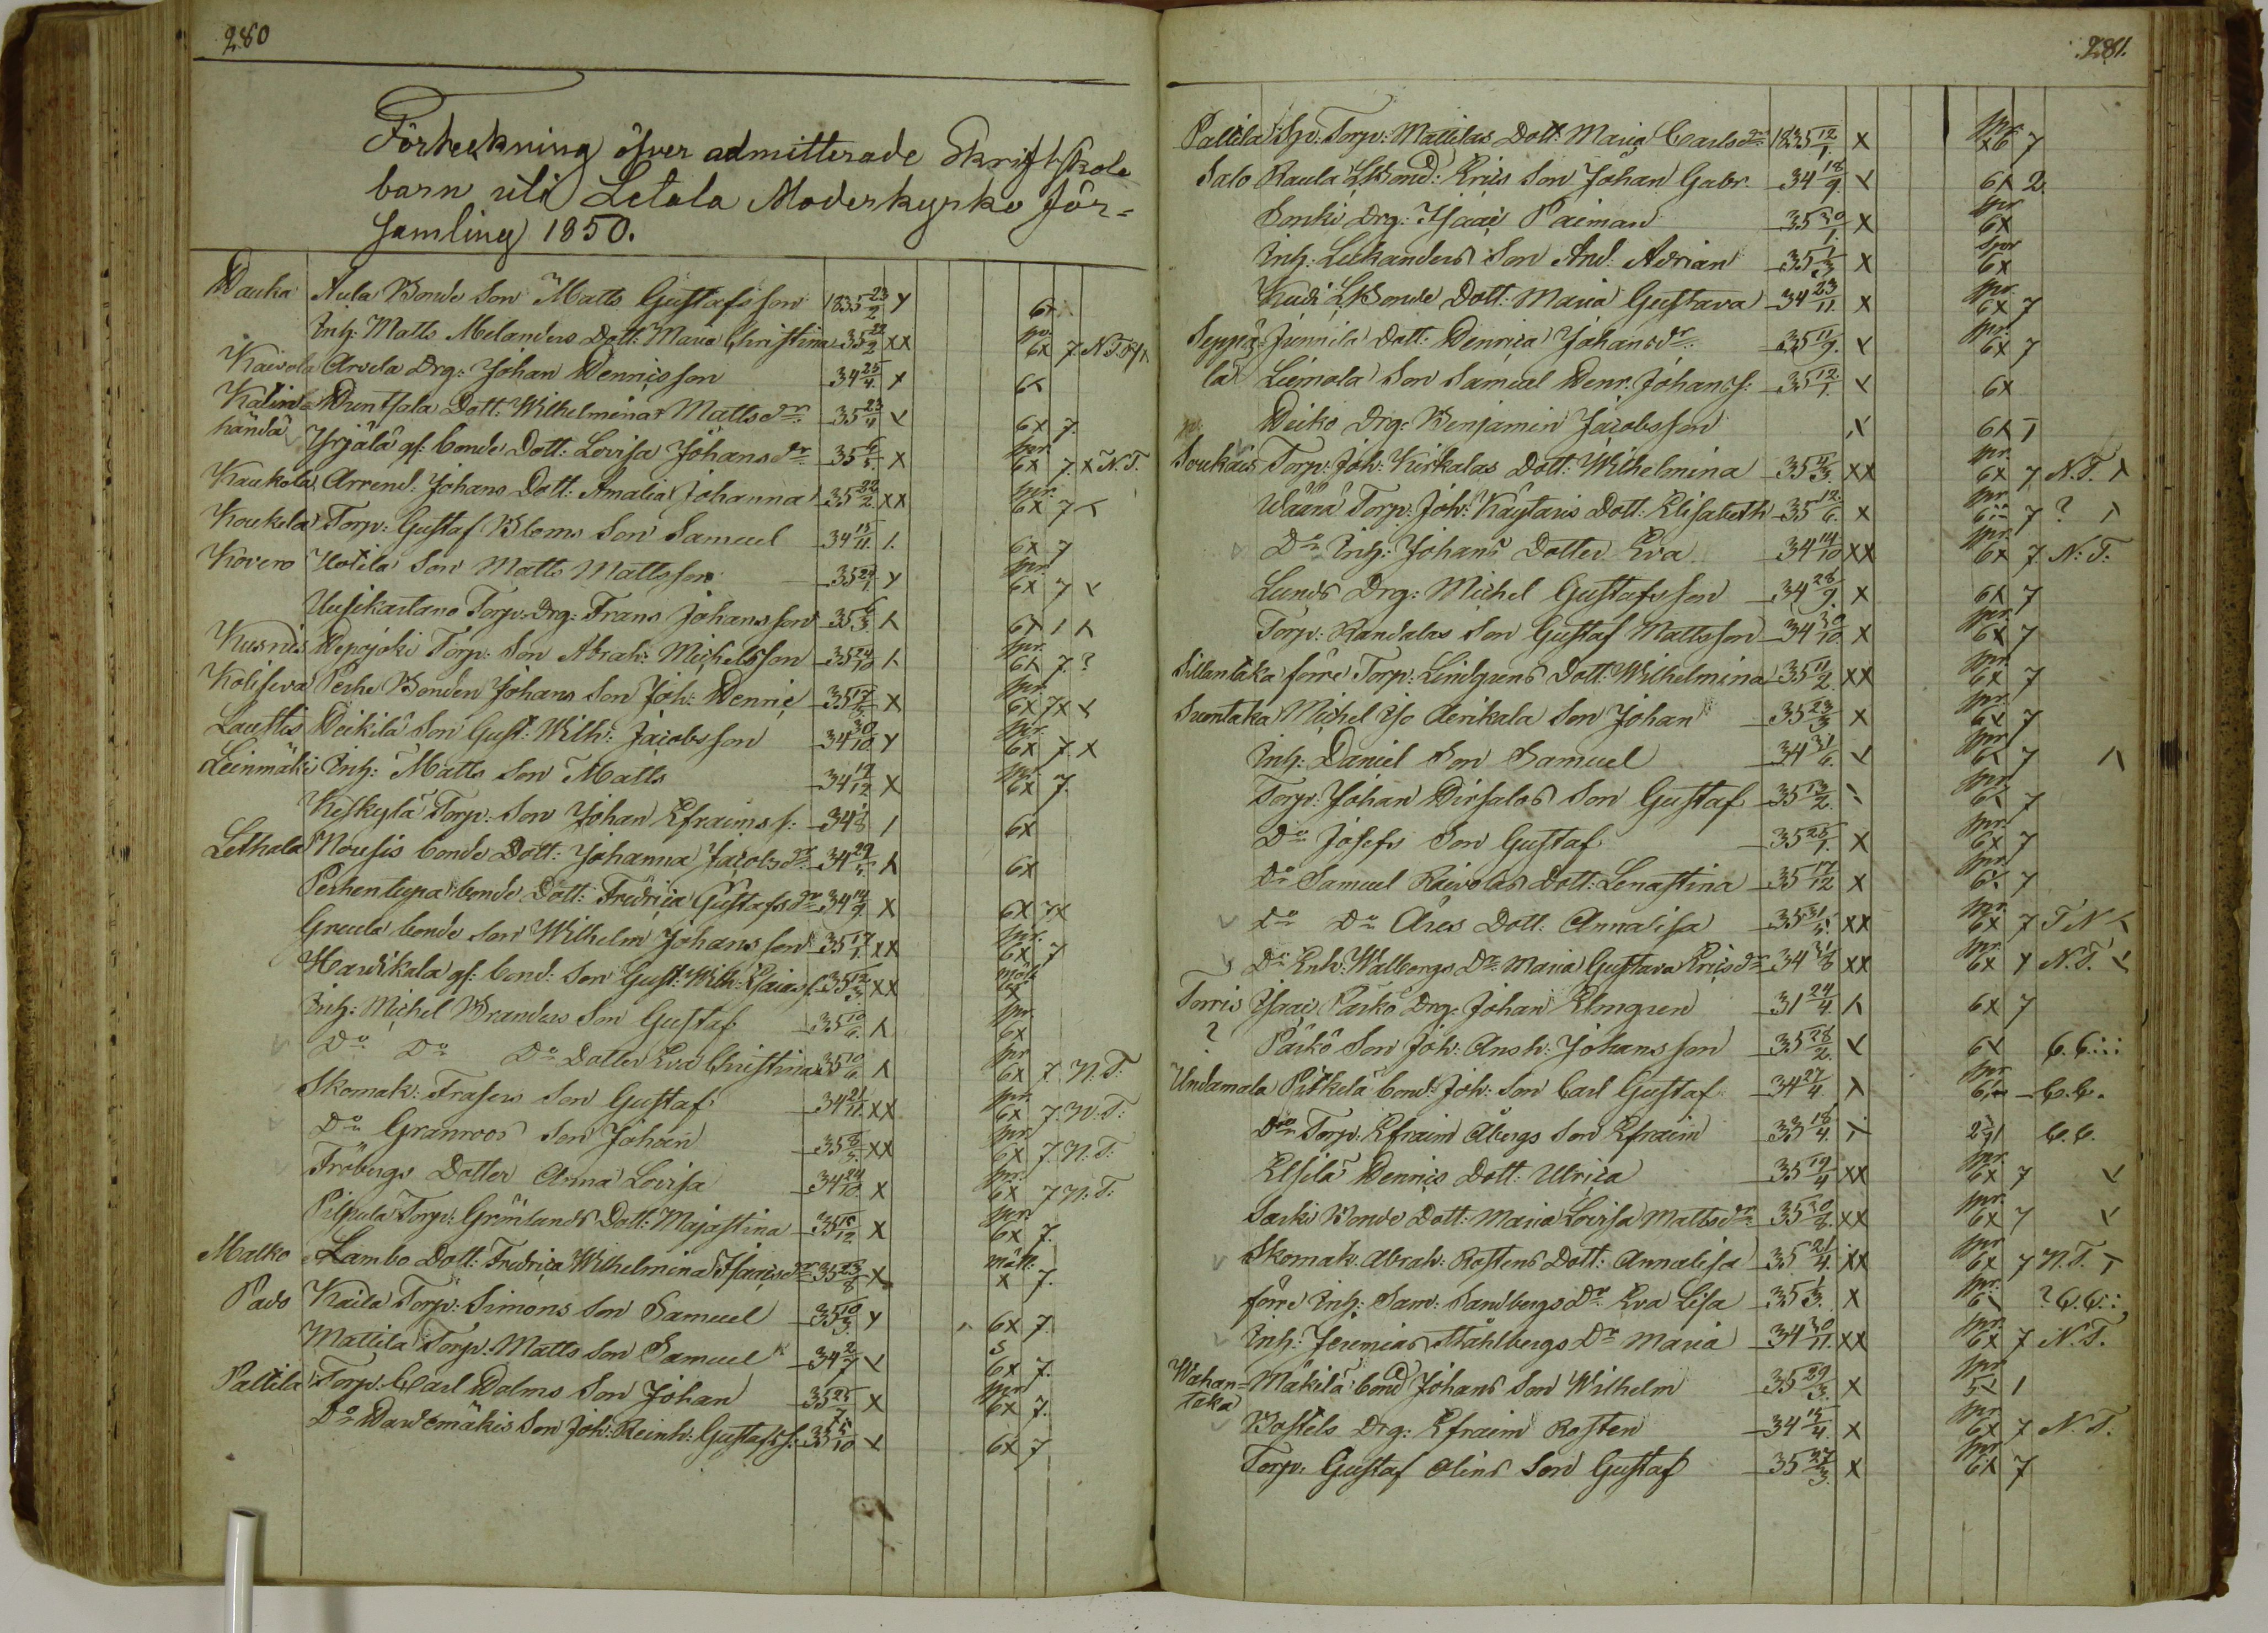 280
Förteckning öfver admitterade Skriftskole
barn uti Letala Moderkyrko för=
samling 1850.
Hauka Aula Bonde Son Matts Gustafsson 1835 23/2 x 6x
Inh: Matts Melanders Dott: Maria Christina 35 22/2 xx pr. 6x 7 N.T.
Kaivola Arvela Drg: Johan Henricsson 34 25/4 x 6x
Kalin Huntsala Dott: Wilhelmina Mattsdr 35 23/4 x 6x 7.
händä Yrjälä gf: bonde Dott: Lovisa Johansdr 35 6/5 x pr. 6x 7 x N.T.
Kaukola Arrend: Johans Dott: Amalia Johanna 35 22/2 xx pr. 6x 7 x
Koukela Torp: Gustaf Bloms Son Samuel 34 15/11 6x 7
Kovero Uotila Son Matts Mattsson 35 x pr. 6x 7 x
Uusikartano Torp: Drg: Frans Johansson 35 6/3 x 6x 1 x
Kusnis Hepojoki Torp: Son Abrah: Michelsson 35 24/10 x pr. 6x 7 ?
Koliseva Perhe Bonden Johans Son Joh: Henric 35 17 x pr. 6x 7x x
Lauttis Heikilä Son Gust: Wilh: Jacobsson 34 30/10 x pr. 6x 7 x
Leinmäki Inh: Matts Son Matts 34 19/12 x pr. 6x 7.
Keskylä Torp: Son Johan Efraimss: 34 6x
Lethala Nousis bonde Dott: Johanna Jacobsdr 34 29 x 6x
Perhentupa bonde Dott: Fredrica Gustafsdr 34 14/9 x 6x 7x
Greula bonde Son Wilhelm Johansson 35 17/1 xx pr. 6x 7
Haudikala gf: bond: Son Gust: Wilh: 35 12/3 xx
Inh: Michel Branders Son Gustaf 35 10/6 x pr. 6x
Do Do Do Dotter Eva Christina 35 10/6 x pr. 6x 7 N.T:
Skomak: Frasers Son Gustaf 34 21/11 xx pr. 6x 7. N.T:
Do Granroos Son Johan 35 8/5 xx pr. 6x 7. N.T:
Fröbergs Dotter Anna Lovisa 34 24/10 x pr. 6x 7 N.T:
Pilpula Torp: Grönlands Dott: Majastina 35 15/12 x pr. 6x 7.
Malko Lambo Dott: Fredrica Wilhelmina Isacsdr 35 23/8 x mäk x 7.
Pado Kaila Torp: Simons Son Samuel 35 10/3 x 6x 7
Mattila Torp: Matts Son Samuel 34 2/7 x 5 6x 7.
Pallila Torp: Carl Holms Son Johan 35 25/7 x pr 6x 7.
Do Hardemäkis Son Joh: Reinh: Gustafss: 35 5/10 x 6x 7
281.
Pallila Sp: Torp: Mattilas Dott: Maria Carlsdr 1835 12/1 x pr. x6 7
Salo Raula LBond: Erics Son Johan Gabr. 34 18/9 x 6x 2
Sonki Drg: Isaac Paiman 35 30/1 x pr 6x
Inh: Leekanders Son And: Adrian 35 1/3 x pr 6x
Kudi LBonde Dott: Maria Gustava 34 23/11 x pr. 6x 7
Seppä= Junnila Dott: Henrica Johansdr 35 11/9 x pr. 6x 7
lä Liemola Son Samuel Henr: Johanss: 35 12/1 x 6x
Heiko Drg: Benjamin Jacobsson x 6x 1
Soukais Torp: Joh: Kirkalas Dott: Wilhelmina 35 4/3 xx pr. 6x 7 N.T. x
Wäärä Torp: Joh: Käytaris Dott: Elisabeth 35 12/6 x pr. 7 ? x
Do Inh: Johans Dotter Eva 34 14/10 xx pr. 6x 7 N:T:
Lunds Drg: Michel Gustafsson 34 28/9 x 6x 7
Torp: Randalas Son Gustaf Mattsson 34 30/10 x pr. 6x 7
Sillantaka förre Torp: Lindgrens Dott: Wilhelmina 35 11/2 xx pr. 6x 7
Suontaka Michel Yo Aerikala Son Johan 35 23/3 x pr. 6x 7
Inh: Daniel Son Samuel 34 31 x pr. 6x 7 x
Torp: Johan Hirsalos Son Gustaf 35 13/2 pr. 6x 7
Do Josefs Son Gustaf 35 25/1 x pr. 6x 7
Do Samuel Raivolas Dott: Lenastina 35 17/12 x pr. 6x 7
Do Do Ares Dott: Annalisa 35 31/5 xx pr. 6x 7 T N x
Do Enk: Walborgs Dr Maria Gustava Ericsdr 34 31/8 xx pr. 6x x N.T. x
Torris Isaac Parko Drg: Johan Elmgren 31 24/4 x 6x 7
? Päiko Son Joh: Ansh: Johansson 35 28/2 x 6x 6.6:::
Undamala Pitkelä bond: Joh: Son Carl Gustaf 34 27/4 x pr 6.6.
Do Torp: Efraim Åbergs Son Efraim 33 18/4 x 6.6.
Elsilä Henrics Dott: Ulrica 35 19/4 xx pr. 6x 7 x
Sarki Bonde Dott: Maria Lovisa Mattsdr 35 30/8 xx pr. 6x 7 x
Skomak: Abrah: Rostens Dott: Annalisa 35 21/4 xx pr 6x 7 N.T. x
förre Inh: Sam: Sandbergs Dr Eva Lisa 35 1/3 x pr. 6x ? 6.6::
Inh: Jeremias Ståhlbergs Dr Maria 34 30/11 xx pr. 6x 7 N.T.
Wahan= Mäkilä bond Johans Son Wilhelm 35 29/3 x pr 5x 1
taka Bostels Drg: Efraim Rosten 34 15/4 x pr 6x 7 N.T.
Torp: Gustaf Olins Son Gustaf 35 27/3 x pr 6x 7